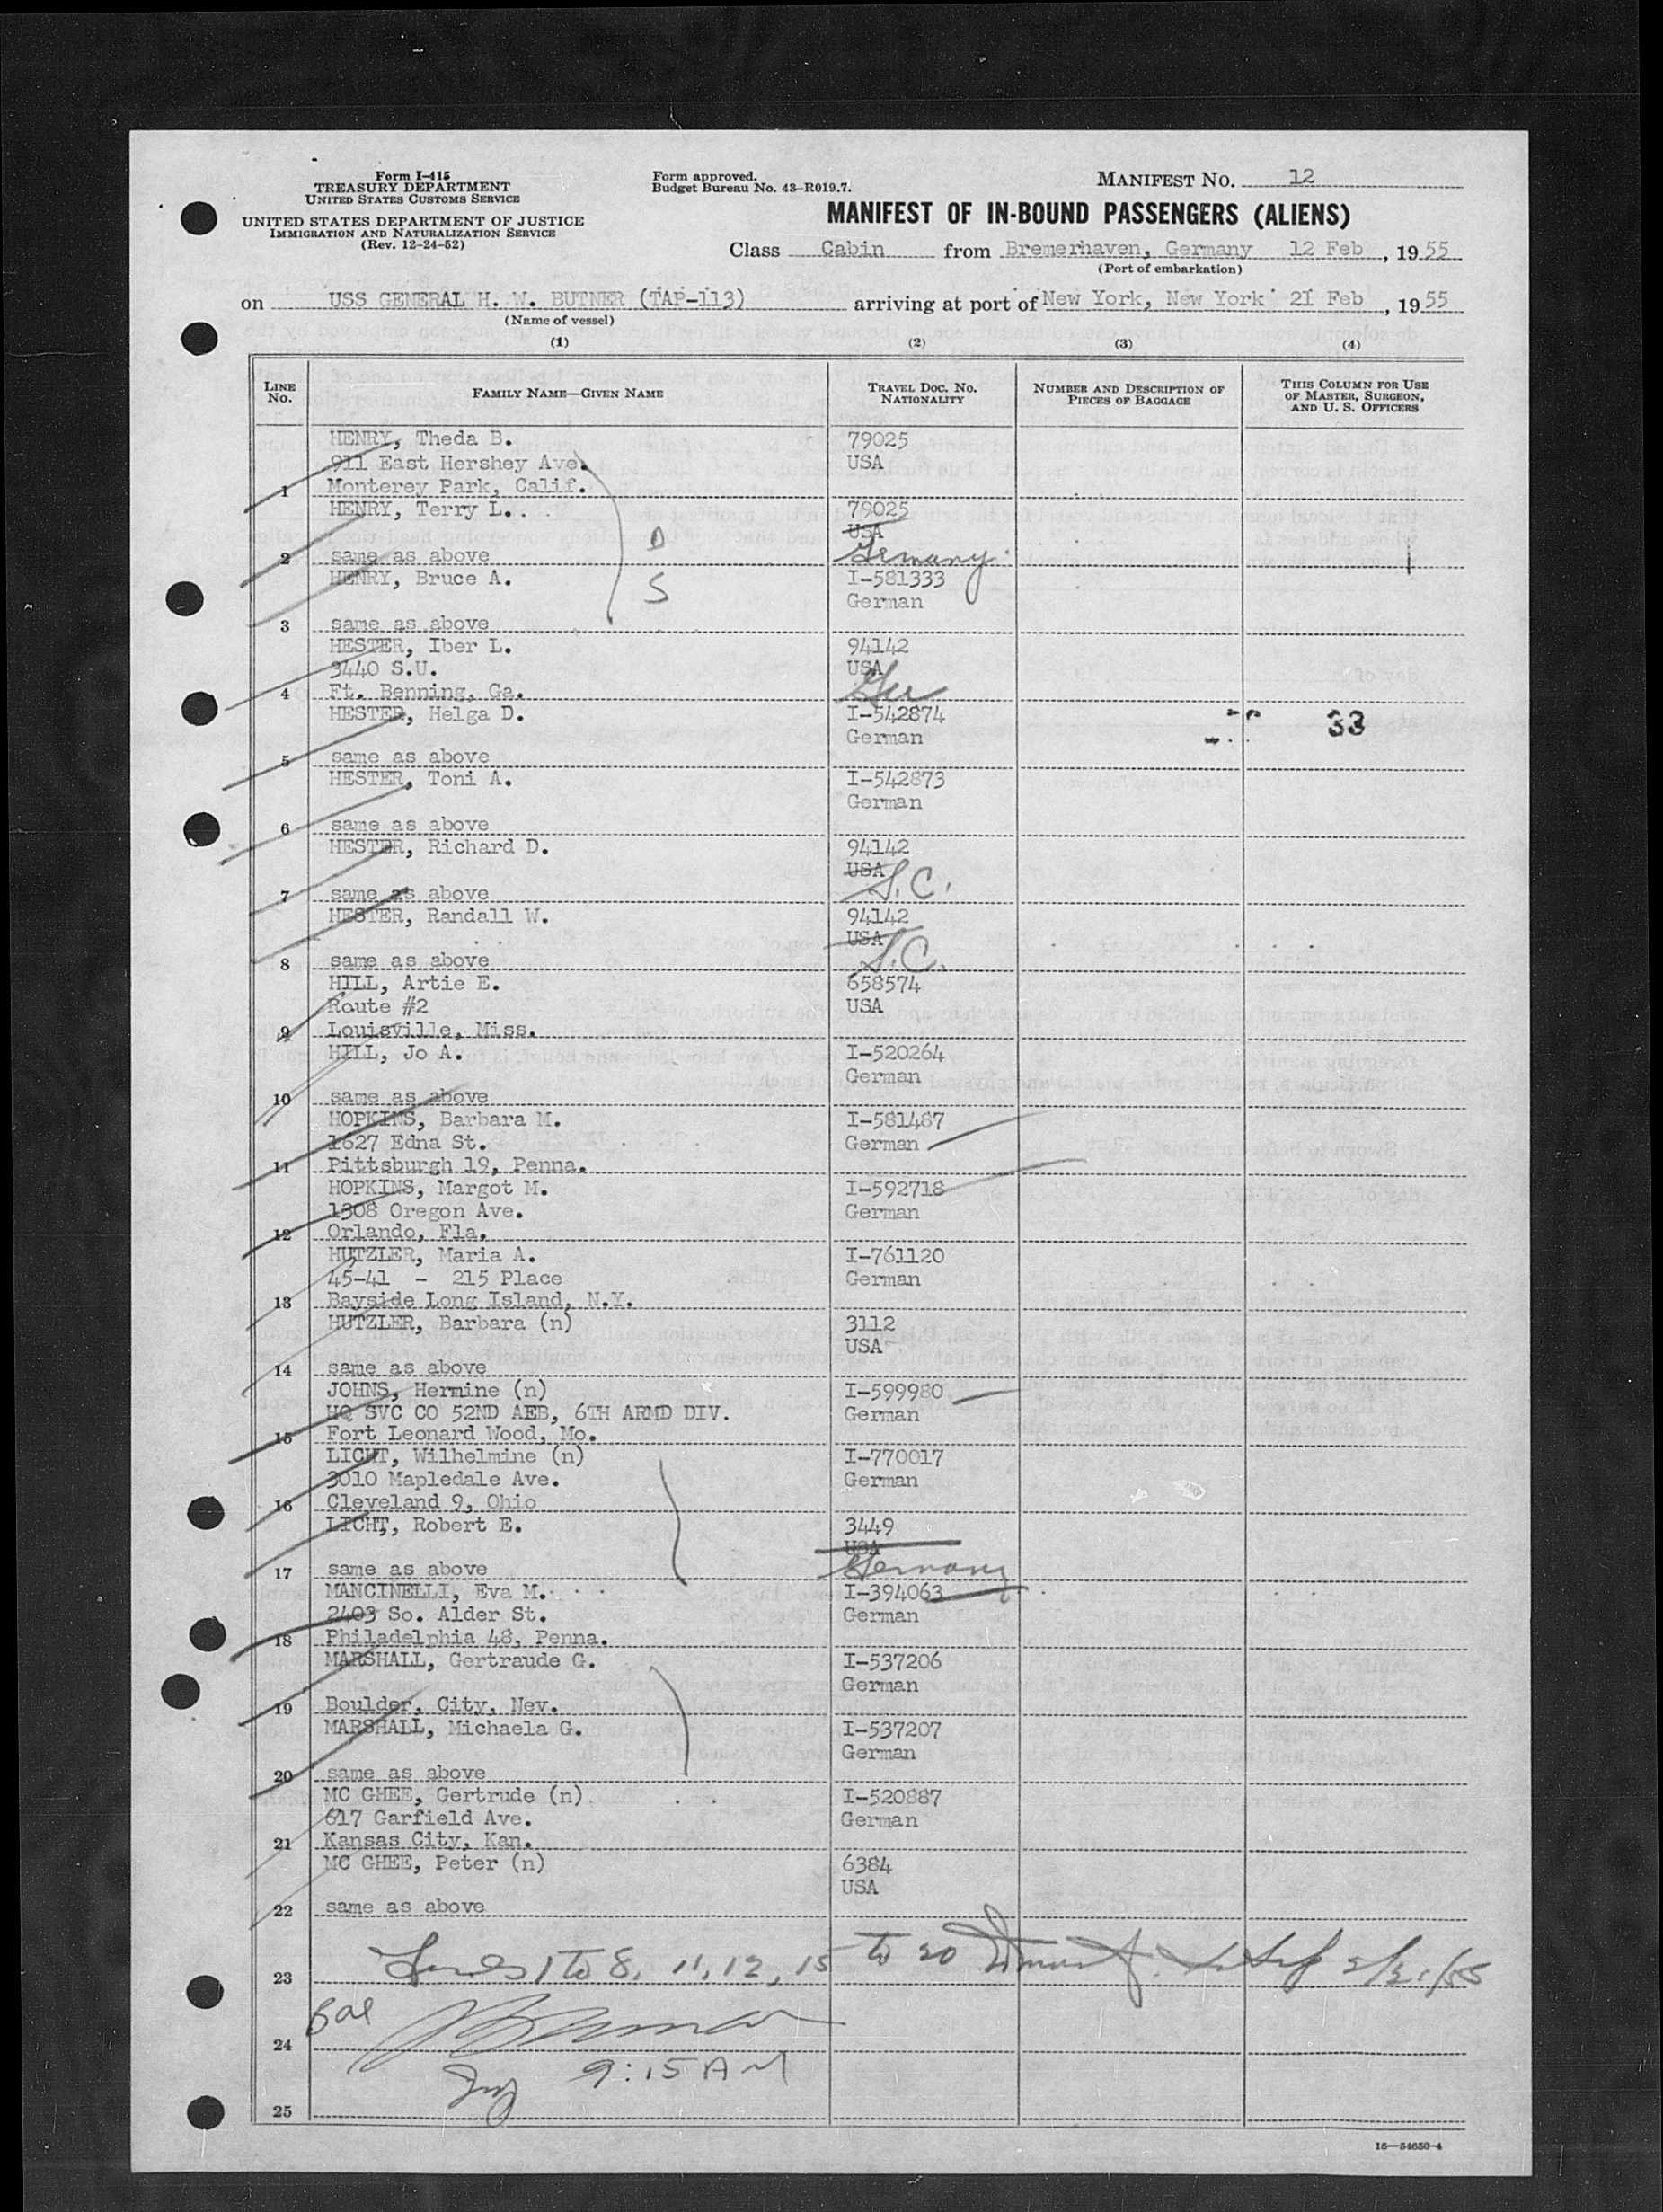 Form I-415
TREASURY DEPARTMENT
UNITED STATES CUSTOMS SERVICE
UNITED STATES DEPARTMENT OF JUSTICE
IMMIGRATION AND NATURALIZATION SERVICE
(Rev. 12-24-52)
Form approved.
Budget Bureau No. 43-R019.7.
MANIFEST NO. 12
MANIFEST OF IN-BOUND PASSENGERS (ALIENS)
Class Cabin from Bremerhaven, Germany 12 Feb, 1955
(Port of embarkation)
on USS GENERAL H. W. BUTNER (TAP-113) arriving at port of New York, New York 21 Feb, 1955
(Name of vessel)
(1) (2) (3) (4)
LINE NO. FAMILY NAME—GIVEN NAME TRAVEL DOC. NO. NATIONALITY NUMBER AND DESCRIPTION OF PIECES OF BAGGAGE THIS COLUMN FOR USE OF MASTER, SURGEON, AND U. S. OFFICERS
HENRY, Theda B. 79025
911 East Hershey Ave. USA
1 Monterey Park, Calif.
HENRY, Terry L. 79025
D USA
2 same as above Germany
HENRY, Bruce A. I-581333
S German
3 same as above
HESTER, Iber L. 94142
3440 S.U. USA
4 Ft. Benning, Ga. Ger
HESTER, Helga D. I-542874 33
German
5 same as above
HESTER, Toni A. I-542873
German
6 same as above
HESTER, Richard D. 94142
USA S.C.
7 same as above
HESTER, Randall W. 94142
USA S.C.
8 same as above
HILL, Artie E. 658574
Route #2 USA
9 Louisville, Miss.
HILL, Jo A. I-520264
German
10 same as above
HOPKINS, Barbara M. I-581487
1627 Edna St. German
11 Pittsburgh 19, Penna.
HOPKINS, Margot M. I-592718
1308 Oregon Ave. German
12 Orlando, Fla.
HUTZLER, Maria A. I-761120
45-41 - 215 Place German
13 Bayside Long Island, N.Y.
HUTZLER, Barbara (n) 3112
USA
14 same as above
JOHNS, Hermine (n) I-599980
HQ SVC CO 52ND AEB, 6TH ARMD DIV. German
15 Fort Leonard Wood, Mo.
LICHT, Wilhelmine (n) I-770017
3010 Mapledale Ave. German
16 Cleveland 9, Ohio
LICHT, Robert E. 3449
USA
17 same as above Germany
MANCINELLI, Eva M. I-394063
2403 So. Alder St. German
18 Philadelphia 48, Penna.
MARSHALL, Gertraude G. I-537206
German
19 Boulder, City, Nev.
MARSHALL, Michaela G. I-537207
German
20 same as above
MC GHEE, Gertrude (n) I-520887
617 Garfield Ave. German
21 Kansas City, Kan.
MC GHEE, Peter (n) 6384
USA
22 same as above
23 Lines 1 to 8, 11, 12, 15 to 20 2/21/55
24
9:15 AM
25
16—54650-4